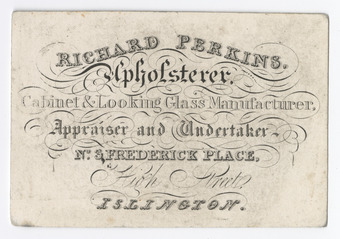 RICHARD PERKINS.
Upholsterer.
Cabinet & Looking Glass Manufacturer,
Appraiser and Undertaker
No. 3, FREDERICK PLACE,
High Street
ISLINGTON.